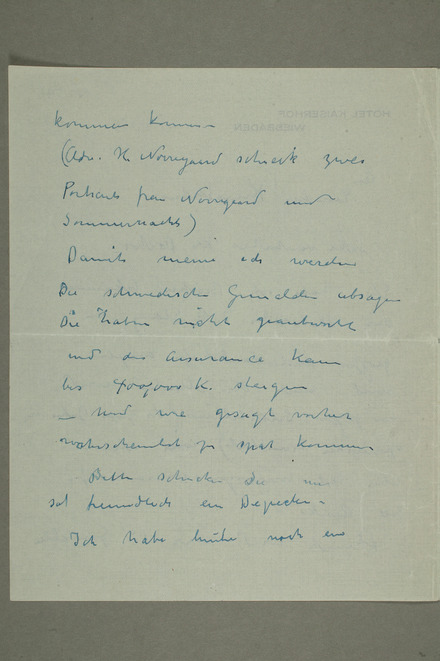 kommen können
(Adv. H. Nörregaard schickt zwei
Portraits frau Nörregaard und
Sommernachts)
Damit meine ich werden
Die schwedische Gemälden absagen
Die haben nicht geantwortet
und die assurance kann
bis 400,000 K. steigen
– und wie gesagt
wahrscheinlich zu spät kommen
Bitte schicken Sie mir
so freundlich ein Depeschen –
Ich habe noch ein
HOTEL KAISERHOF
WIESBADEN